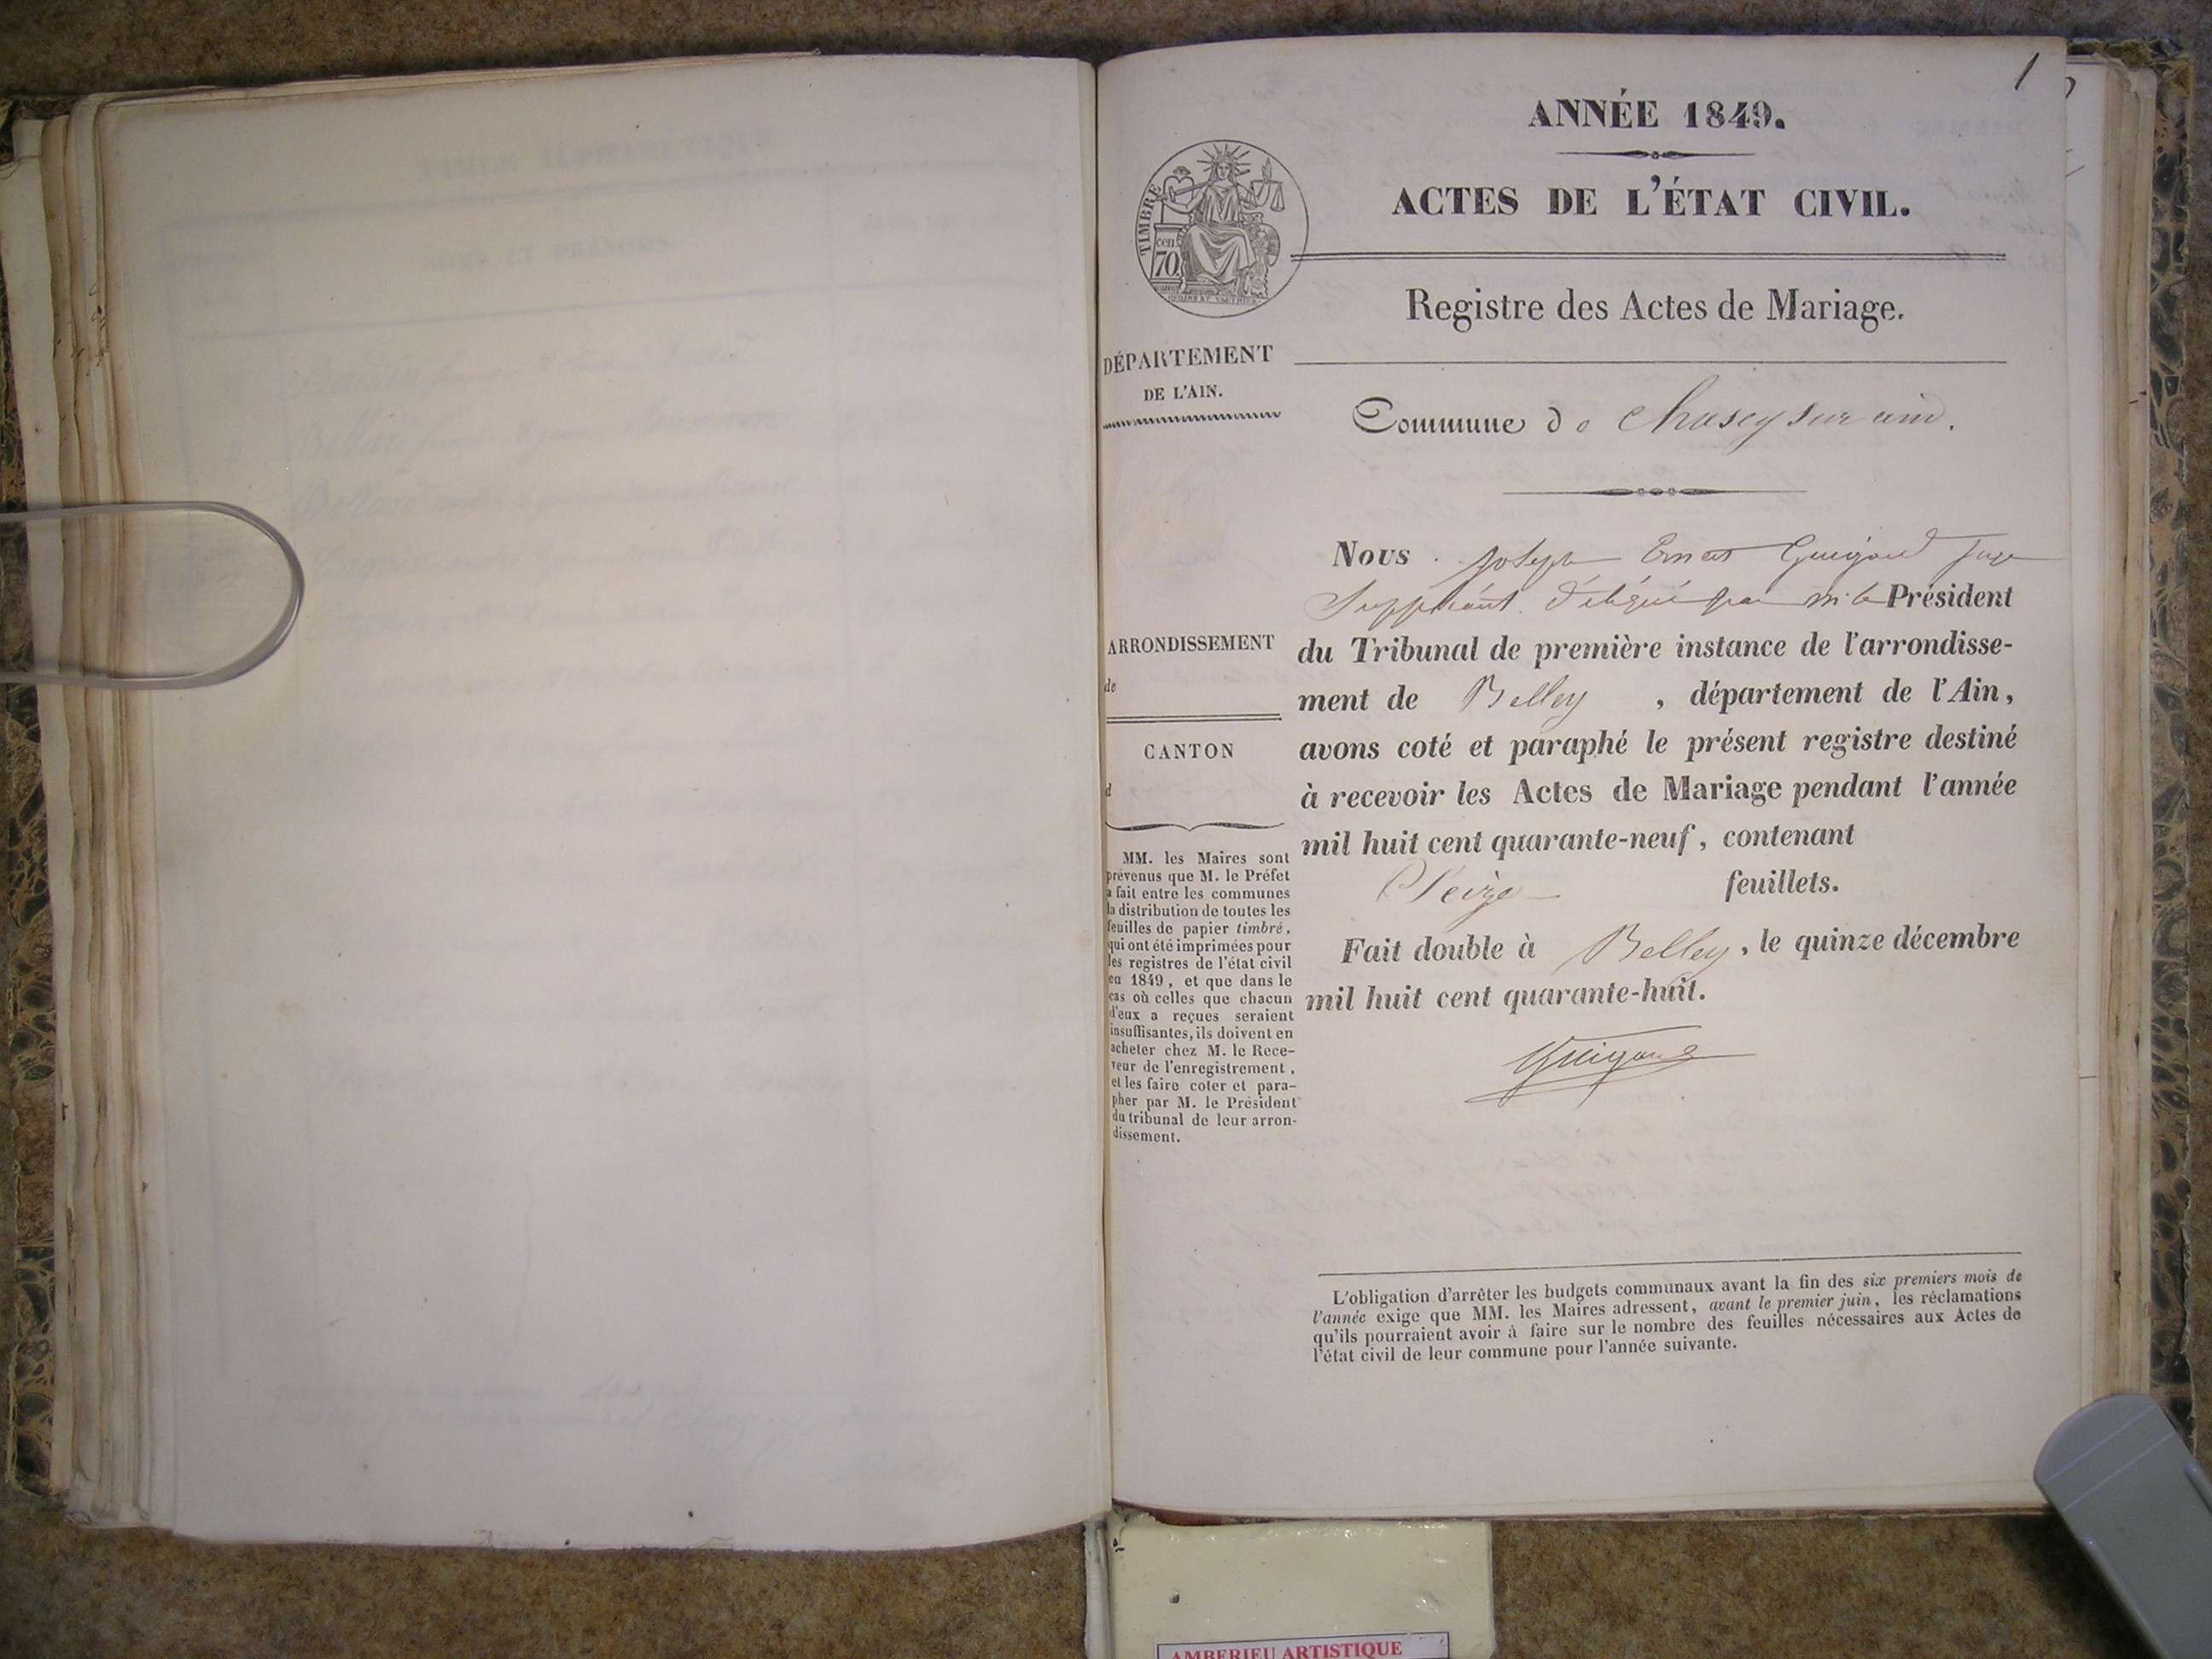 1
ANNÉE 1849.
ACTES DE L'ÉTAT CIVIL.
TIMBRE
cen
70
Registre des Actes de Mariage.
DÉPARTEMENT
DE L'AIN.
Commune de Chasey sur ain.
Nous Joseph Ernest Guigard Juge
Suppléant délégué par m. le Président
ARRONDISSEMENT
de
du Tribunal de première instance de l'arrondisse-
ment de Belley, département de l'Ain,
CANTON
d
avons coté et paraphé le présent registre destiné
à recevoir les Actes de Mariage pendant l'année
mil huit cent quarante-neuf, contenant
Seize feuillets.
Fait double à Belley, le quinze décembre
mil huit cent quarante-huit.
MM. les Maires sont
prévenus que M. le Préfet
a fait entre les communes
la distribution de toutes les
feuilles de papier timbré,
qui ont été imprimées pour
les registres de l'état civil
en 1849, et que dans le
cas où celles que chacun
d'eux a reçues seraient
insuffisantes, ils doivent en
acheter chez M. le Rece-
veur de l'enregistrement,
et les faire coter et para-
pher par M. le Président
du tribunal de leur arron-
dissement.
L'obligation d'arrêter les budgets communaux avant la fin des six premiers mois de
l'année exige que MM. les Maires adressent, avant le premier juin, les réclamations
qu'ils pourraient avoir à faire sur le nombre des feuilles nécessaires aux Actes de
l'état civil de leur commune pour l'année suivante.
AMBERIEU ARTISTIQUE